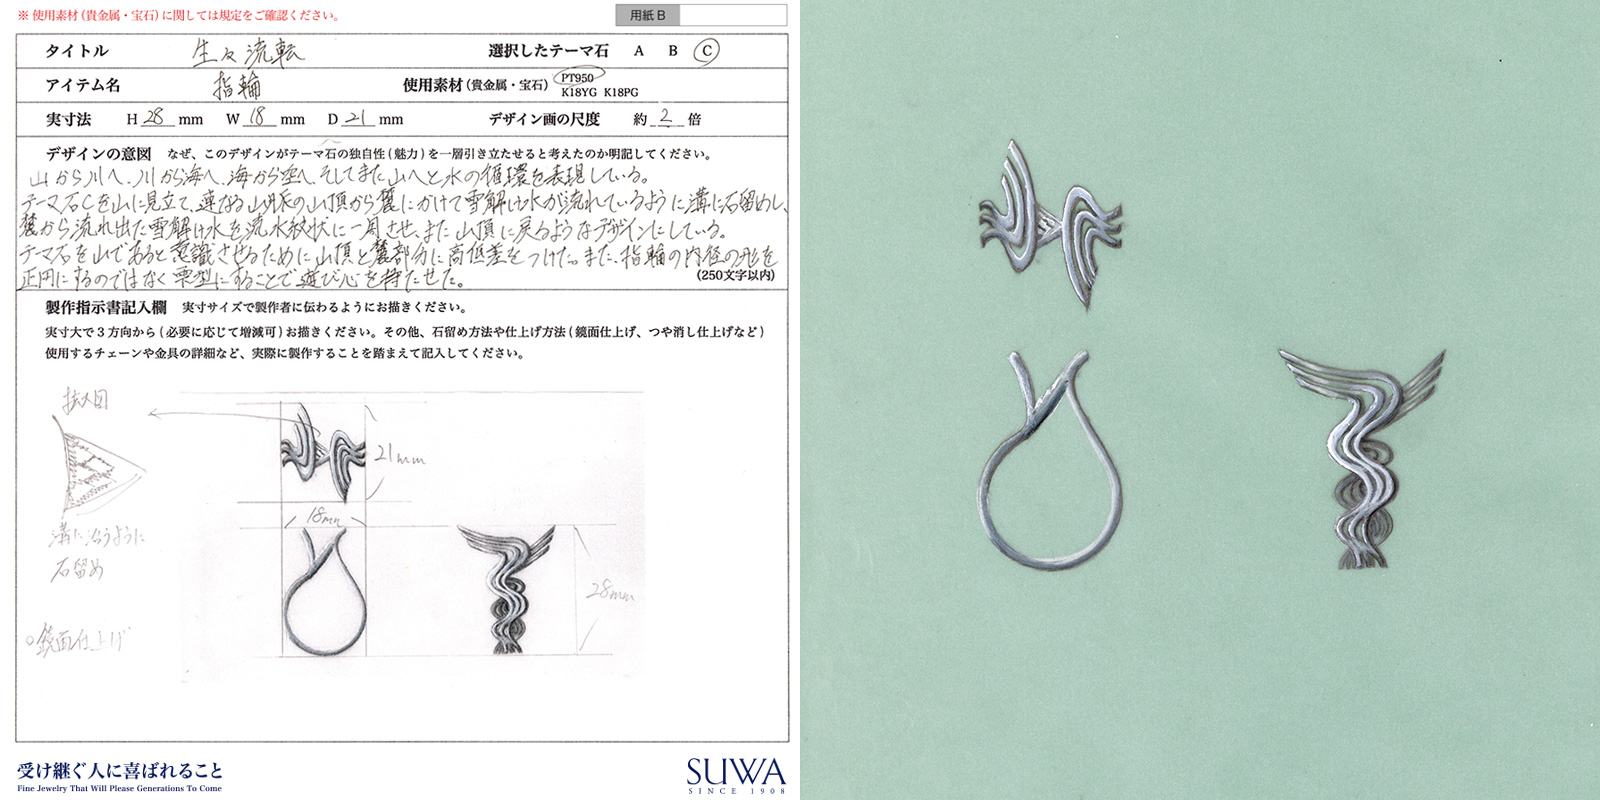 ※ 使用素材（貴金属・宝石）に関しては規定をご確認ください。
用紙 B
タイトル 生々流転 選択したテーマ石 A B C
アイテム名 指輪 使用素材（貴金属・宝石） PT950 K18YG K18PG
実寸法 H 28 mm W 18 mm D 21 mm デザイン画の尺度 約 2 倍
デザインの意図 なぜ、このデザインがテーマ石の独自性（魅力）を一層引き立たせると考えたのか明記してください。
山から川へ、川から海へ、海から空へ、そしてまた山へと水の循環を表現している。
テーマ石Cを山に見立て、連なる山脈の山頂から麓にかけて雪解け水が流れているように溝に石留めし、
麓から流れ出た雪解け水を流水紋状に一周させ、また山頂に戻るようなデザインにしている。
テーマ石を山であると意識させるために山頂と麓部分に高低差をつけた。また、指輪の内径の形を
正円にするのではなく雫型にすることで遊び心を持たせた。
(250文字以内)
製作指示書記入欄 実寸サイズで製作者に伝わるようにお描きください。
実寸大で3方向から（必要に応じて増減可）お描きください。その他、石留め方法や仕上げ方法（鏡面仕上げ、つや消し仕上げなど）
使用するチェーンや金具の詳細など、実際に製作することを踏まえて記入してください。
拡大図
21mm
18mm
溝に沿うように
石留め
28mm
○鏡面仕上げ
受け継ぐ人に喜ばれること
Fine Jewelry That Will Please Generations To Come
SUWA
SINCE 1908